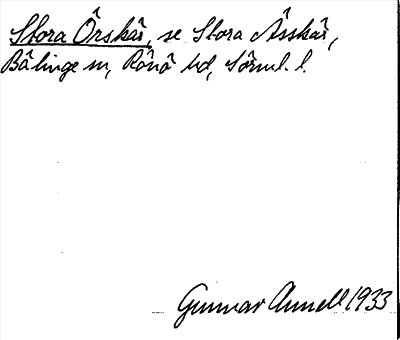 Stora Örskär, se Stora Åsskär,
Bälinge sn, Rönö hd, Sörml. l.
Gunnar Annell 1933